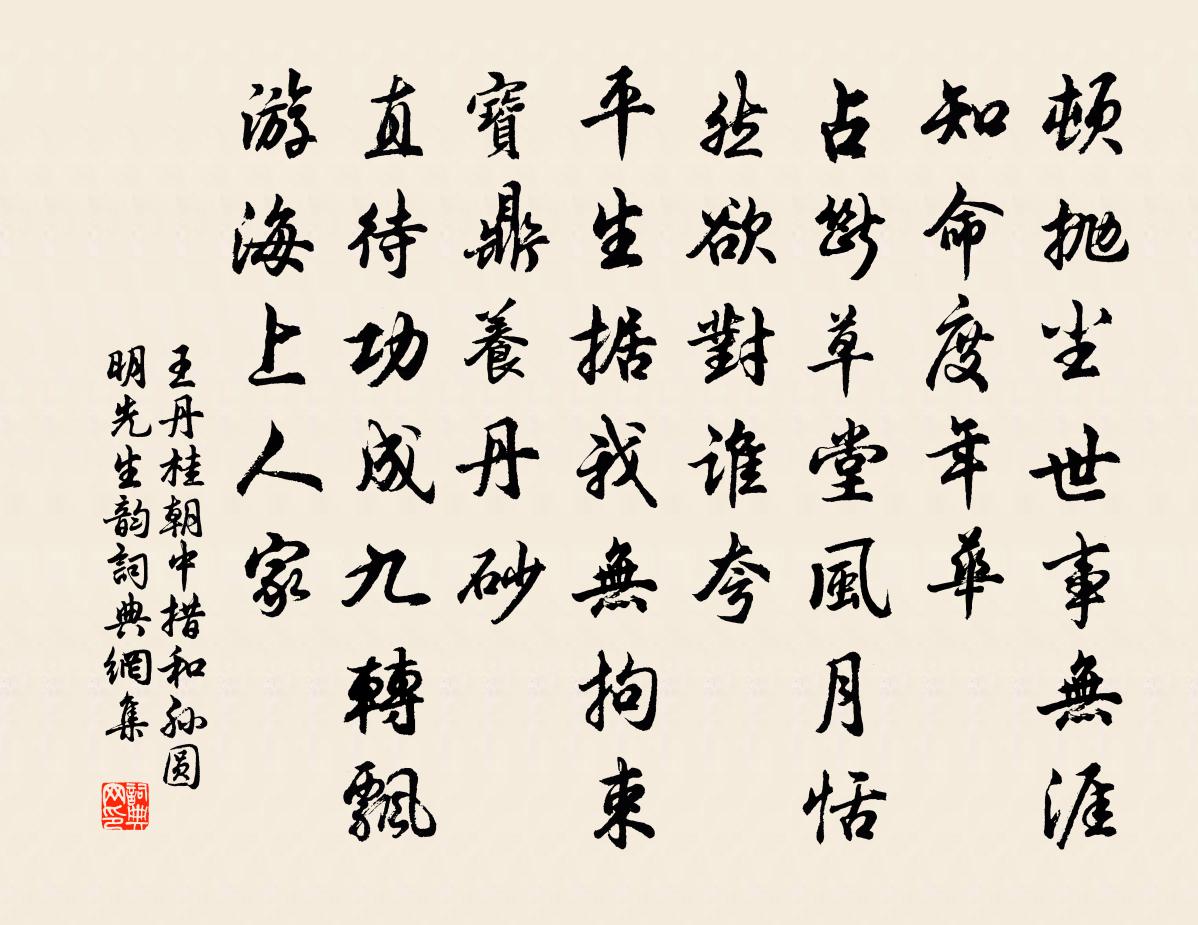 頓抛尘世事無涯
知命度年華
占斷草堂風月恬
然欲對誰夸
平生据我無拘束
寶鼎養丹砂
直待功成九轉飄
游海上人家
王丹桂朝中措和孙圆
明先生韵詞典網集
詞典网印